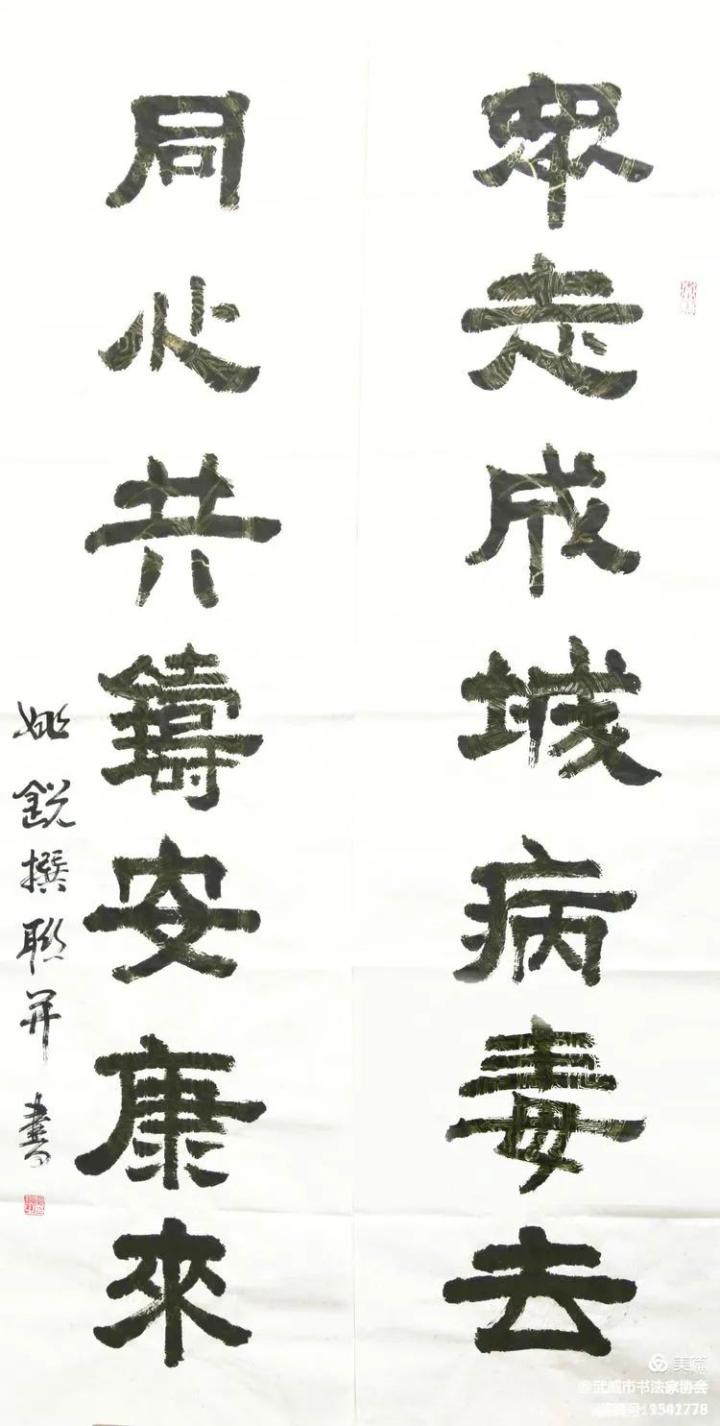 眾志成城病毒去
同心共鑄安康來
姚銳撰聯并書
美篇
@武威市书法家协会